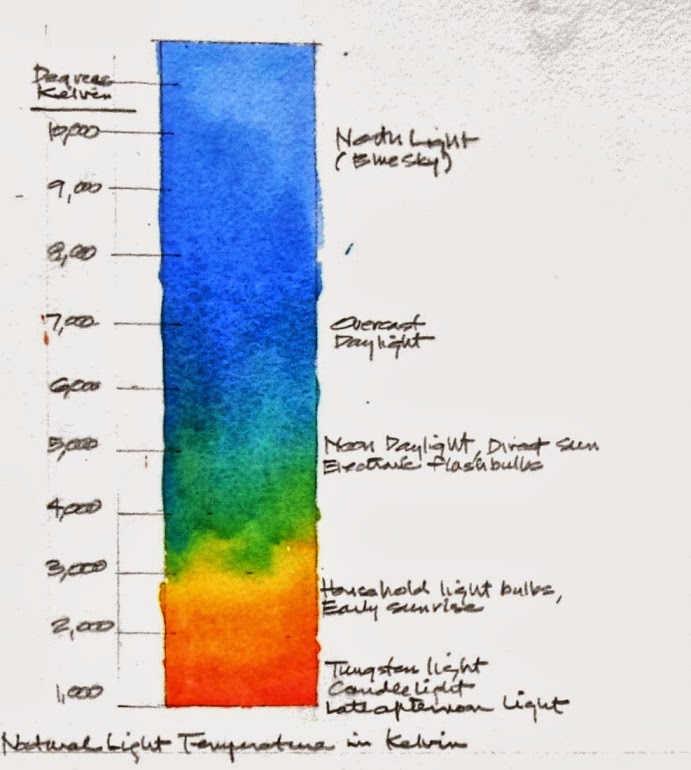 Degrees
Kelvin
10,000
North Light
(Blue Sky)
9,000
8,000
7,000
Overcast
Daylight
6,000
5,000
Noon Daylight, Direct Sun
Electronic flashbulbs
4,000
3,000
Household light bulbs,
Early sunrise
2,000
Tungsten light
Candlelight
1,000
Late afternoon light
Natural Light Temperature in Kelvin